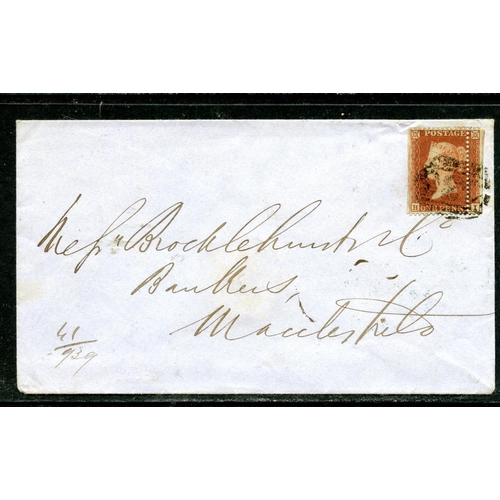 POSTAGE
ONE PENNY
Messrs Brocklehurst & Co
Bankers,
Macclesfield
41
939